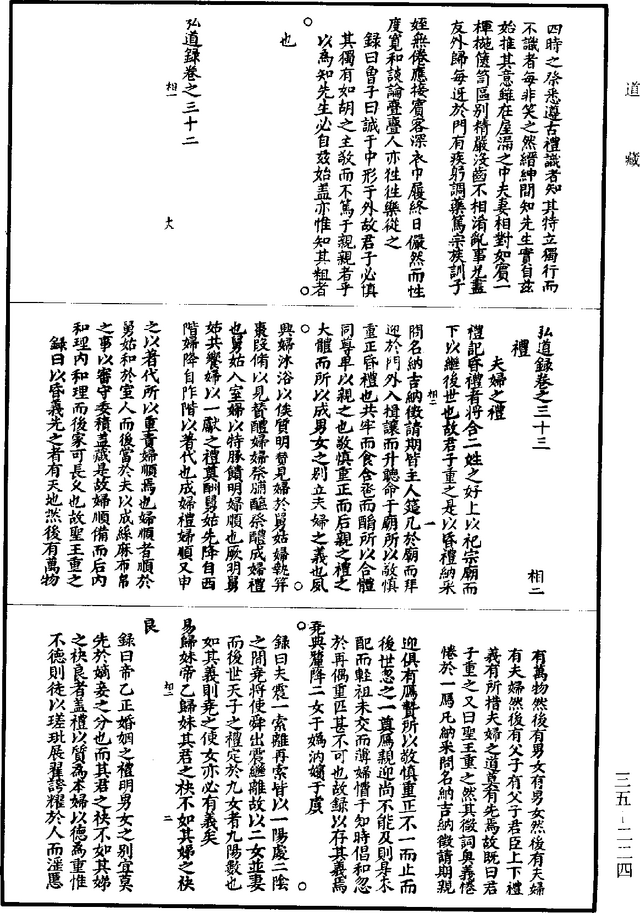 道藏
四時之祭悉遵古禮識者知其特立獨行而
不識者每非笑之然縉紳間知先生實自兹
始推其意雖在屋漏之中夫妻相對如賓一
楎椸篋笥區別精嚴沒齒不相淆亂事兄盡
友外歸每迓於門有疾躬調藥篤宗族訓子
姪無倦應接賓客深衣巾履終日儼然而性
度寬和談論亹亹人亦徃徃樂從之
録曰曾子曰誠于中形于外故君子必慎
其獨有如胡之主敬而不篤于親親者乎
以為知先生必自兹始盖亦惟知其粗者
也
弘道録卷之三十二
相一
大
弘道録卷之三十三
相二
禮
夫婦之禮
禮記昏禮者將合二姓之好上以祀宗廟而
下以繼後世也故君子重之是以昏禮納采
問名納吉納徵請期皆主人筵几於廟而拜
迎於門外入揖讓而升聽命于廟所以敬慎
重正昏禮也共牢而食合卺而酳所以合體
同尊卑以親之也敬慎重正而后親之禮之
大體而所以成男女之別立夫婦之義也夙
興婦沐浴以俟質明贊見婦於舅姑婦執笲
棗段脩以見贊醴婦婦祭脯醢祭醴成婦禮
也舅姑入室婦以特豚饋明婦順也厥明舅
姑共饗婦以一獻之禮奠酬舅姑先降自西
階婦降自阼階以著代也成婦禮婦順又申
之以著代所以重責婦順焉也婦順者順於
舅姑和於室人而後當於夫以成絲麻布帛
之事以審守委積盖藏是故婦順備而后内
和理内和理而後家可長乆也故聖王重之
録曰以昏義先之者有天地然後有萬物
相二
一
有萬物然後有男女有男女然後有夫婦
有夫婦然後有父子有父子君臣上下禮
義有所措夫婦之道莫有先焉故既曰君
子重之又曰聖王重之然其微詞奥義惓
惓於一焉凡納采問名納吉納徵請期親
迎俱有鴈贄所以敬慎重正不一而止而
後世忽之一奠鴈親迎尚不能及則是未
配而輕祖未交而薄婦慣于知時倡和忽
於再偶重匹甚不可也故録以存其義焉
堯典釐降二女于媯汭嬪于虞
録曰夫震一索離再索皆以一陽處二陰
之間堯將使舜出震繼離故以二女並妻
而後世天子之禮定於九女者九陽數也
如其義則堯之使女亦必有義矣
易歸妹帝乙歸妹其君之袂不如其娣之袂
相二
二
良
録曰帝乙正婚姻之禮明男女之別宜莫
先於嫡妾之分也而其君之袂不如其娣
之袂良者盖禮以質為本婦以德為重惟
不德則徒以瑳玼展翟誇耀於人而淫慝
三五-二二四